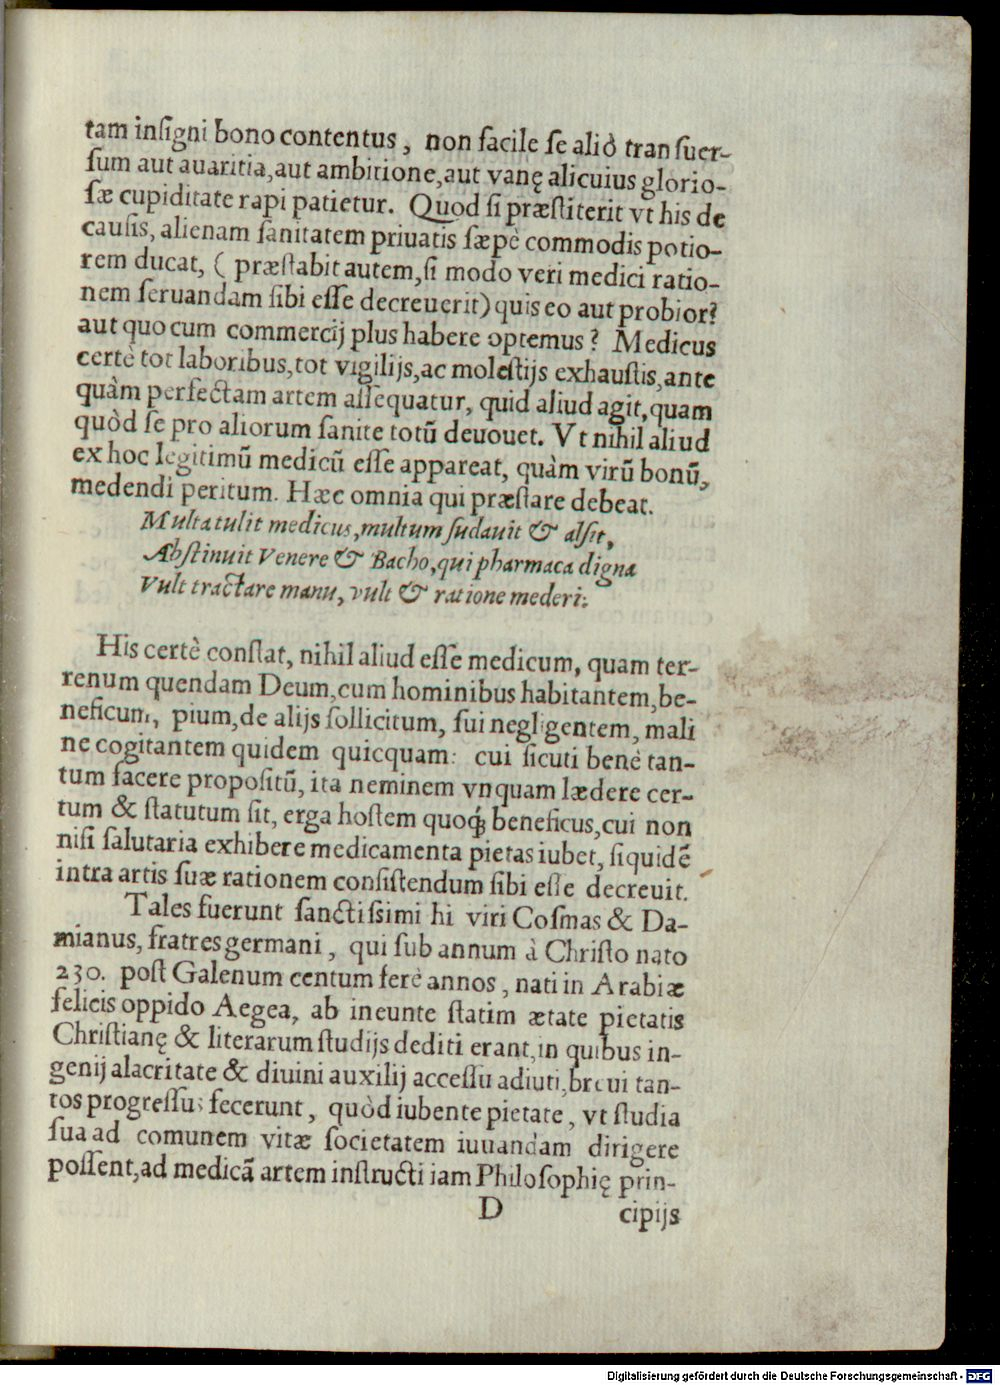 tam inſigni bono contentus, non facile ſe aliò tranſuer-
ſum aut auaritia,aut ambitione,aut vanę alicuius glorio-
ſæ cupiditate rapi patietur. Quod ſi præſtiterit vt his de
cauſis, alienam ſanitatem priuatis ſæpè commodis potio-
rem ducat, ( præſtabit autem,ſi modo veri medici ratio-
nem ſeruandam ſibi eſſe decreuerit) quis eo aut probior?
aut quo cum commercij plus habere optemus? Medicus
certè tot laboribus,tot vigilijs,ac moleſtijs exhauſtis,ante
quàm perfectam artem aſſequatur, quid aliud agit,quam
quòd ſe pro aliorum ſanite totũ deuouet. Vt nihil aliud
ex hoc legitimũ medicũ eſſe appareat, quàm virũ bonũ,
medendi peritum. Hæc omnia qui præſtare debeat.
Multa tulit medicus,multum ſudauit & alſit,
Abſtinuit Venere & Bacho,qui pharmaca digna
Vult tractare manu, vult & ratione mederi.
His certè conſtat, nihil aliud eſſe medicum, quam ter-
renum quendam Deum,cum hominibus habitantem,be-
neficum, pium,de alijs ſollicitum, ſui negligentem, mali
ne cogitantem quidem quicquam: cui ſicuti benè tan-
tum facere propoſitũ, ita neminem vnquam lædere cer-
tum & ſtatutum ſit, erga hoſtem quoq́; beneficus,cui non
niſi ſalutaria exhibere medicamenta pietas iubet, ſiquidẽ
intra artis ſuæ rationem conſiſtendum ſibi eſſe decreuit.
Tales fuerunt ſanctiſsimi hi viri Coſmas & Da-
mianus, fratres germani, qui ſub annum à Chriſto nato
230. poſt Galenum centum ferè annos, nati in Arabiæ
felicis oppido Aegea, ab ineunte ſtatim ætate pietatis
Chriſtianę & literarum ſtudijs dediti erant,in quibus in-
genij alacritate & diuini auxilij acceſſu adiuti,breui tan-
tos progreſſus fecerunt, quòd iubente pietate, vt ſtudia
ſua ad comunem vitæ ſocietatem iuuandam dirigere
poſſent,ad medicã artem inſtructi iam Philoſophię prin-
D cipijs
Digitalisierung gefördert durch die Deutsche Forschungsgemeinschaft - DFG